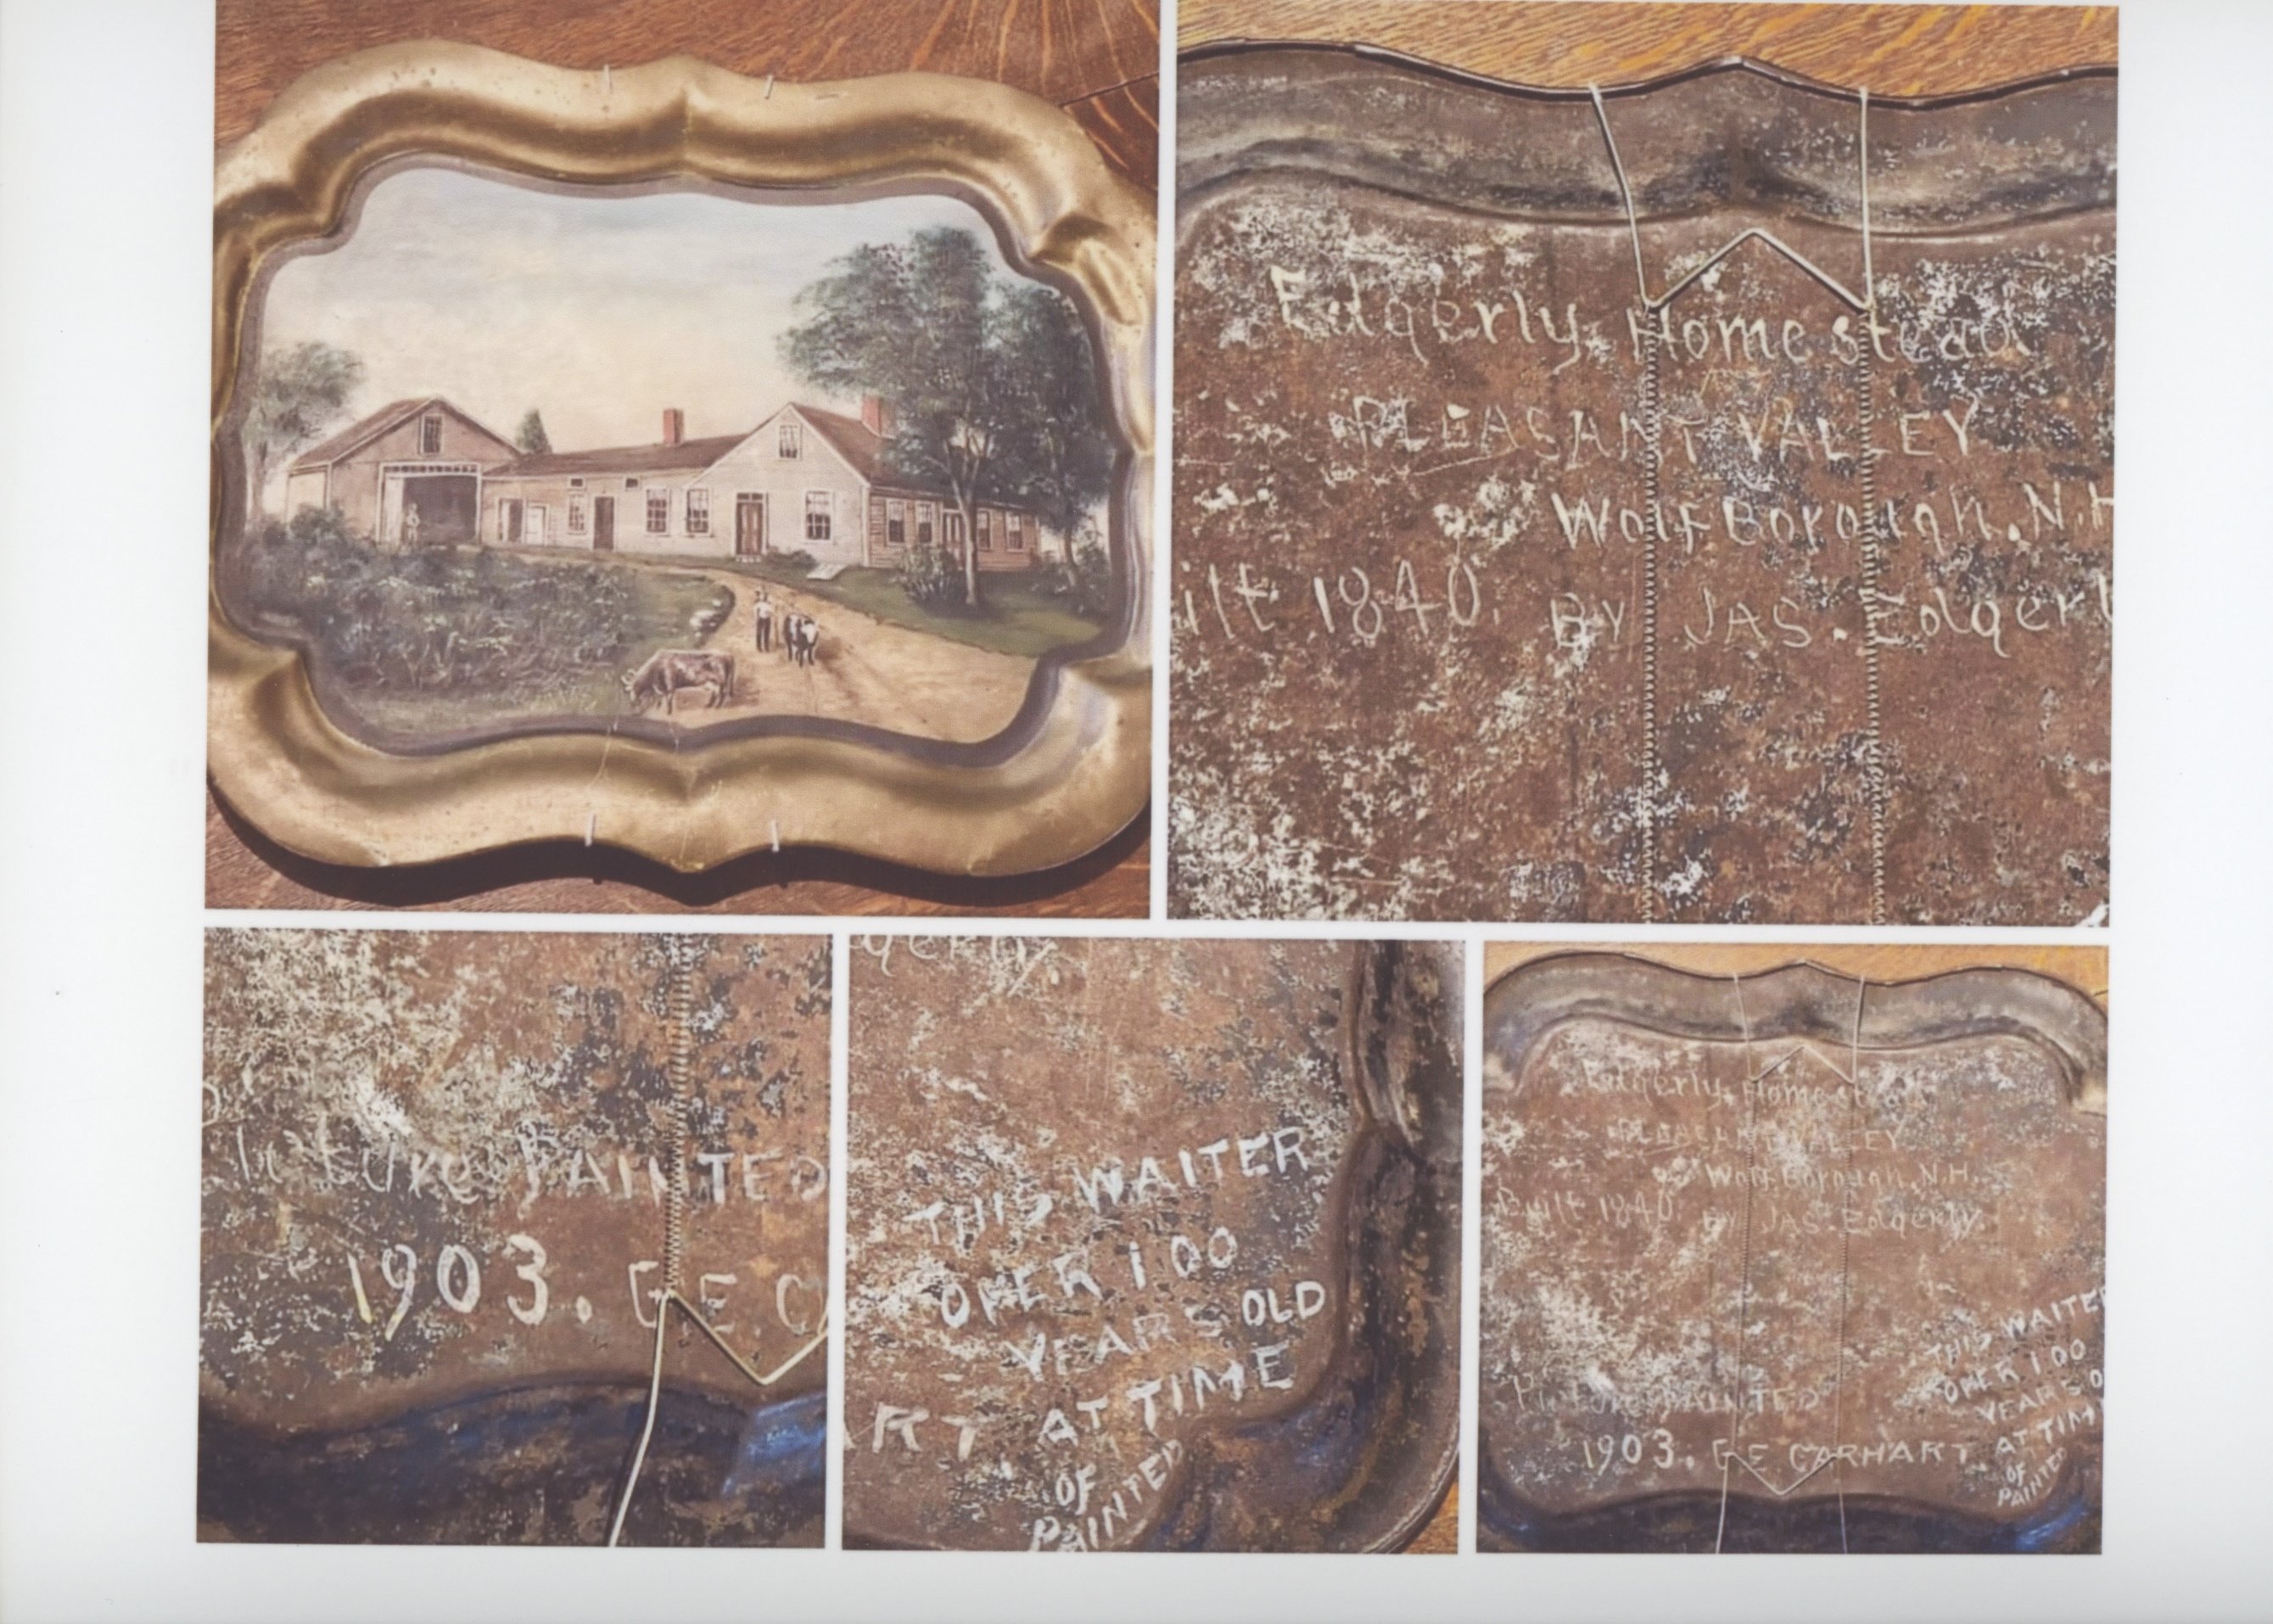 Edgerly, Homestead
PLEASANT VALLEY
WolfBorough, N.H
uilt 1840. BY JAS. Edgerl
Picture PAINTED
1903. G.E CA
gerly
THIS WAITER
OVER 100
YEARS OLD
ART AT TIME
OF
PAINTED
Edgerly, Homestead
PLEASANT VALLEY
WolfBorough, N.H.
Built 1840. BY JAS. Edgerly.
THIS WAITER
OVER 100
YEARS O
Picture PAINTED
1903. G.E CARHART. AT TIM
OF
PAINTED